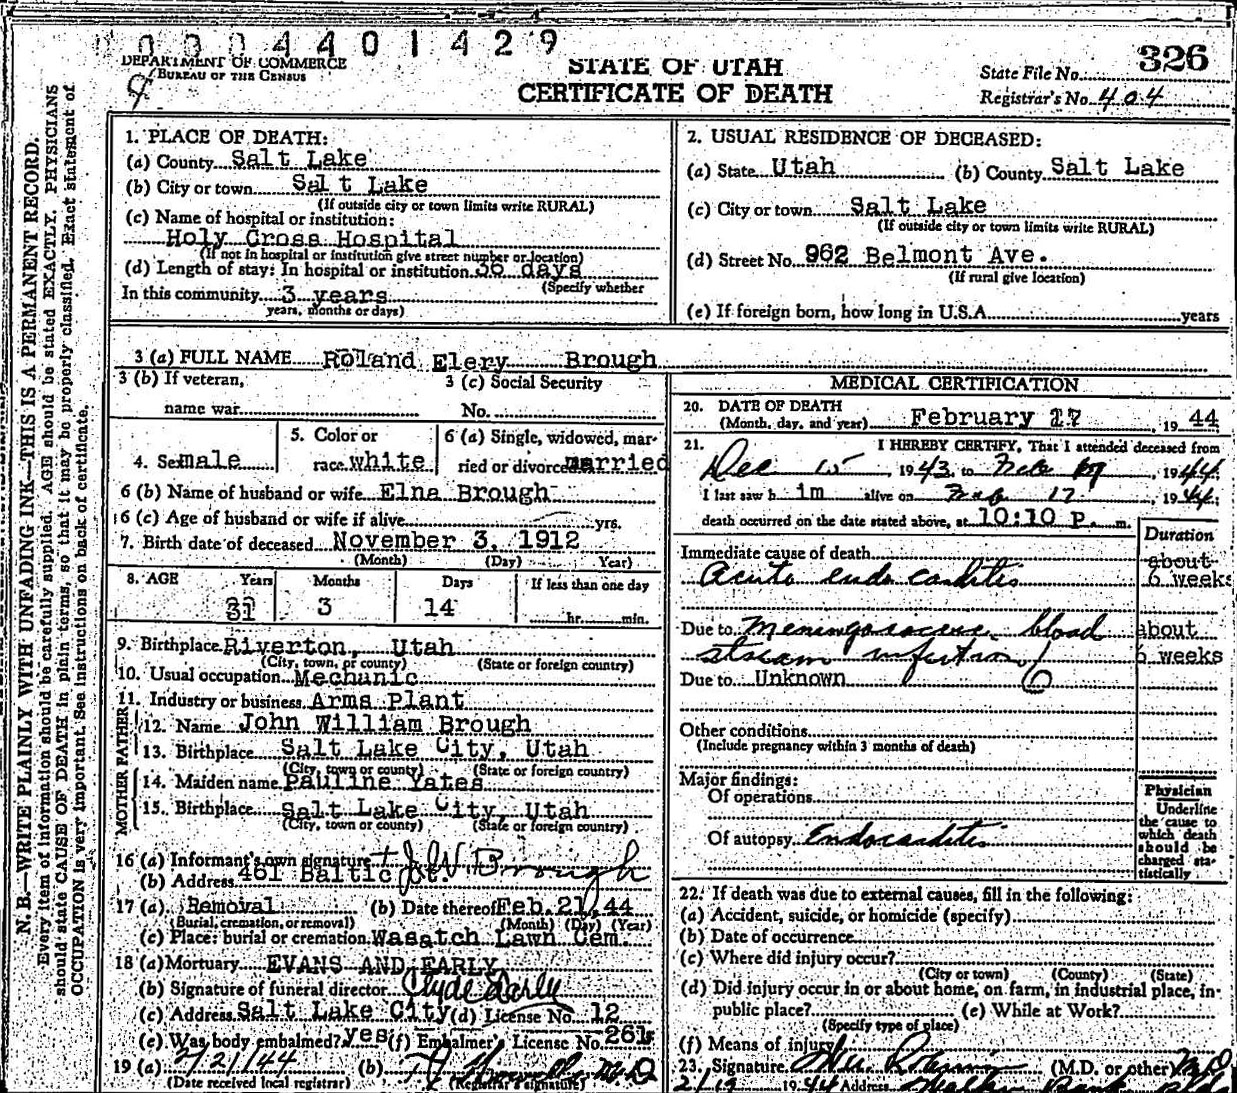 0004401429
DEPARTMENT OF COMMERCE
BUREAU OF THE CENSUS
STATE OF UTAH
CERTIFICATE OF DEATH
State File No. 326
Registrar's No. 404
N. B.—WRITE PLAINLY WITH UNFADING INK—THIS IS A PERMANENT RECORD.
Every item of information should be carefully supplied. AGE should be stated EXACTLY, PHYSICIANS
should state CAUSE OF DEATH in plain terms, so that it may be properly classified. Exact statement of
OCCUPATION is very important. See instructions on back of certificate.
1. PLACE OF DEATH:
(a) County Salt Lake
(b) City or town Salt Lake
(If outside city or town limits write RURAL)
(c) Name of hospital or institution:
Holy Cross Hospital
(If not in hospital or institution give street number or location)
(d) Length of stay: In hospital or institution 36 days
(Specify whether
In this community 3 years
years, months or days)
2. USUAL RESIDENCE OF DECEASED:
(a) State Utah (b) County Salt Lake
(c) City or town Salt Lake
(If outside city or town limits write RURAL)
(d) Street No. 962 Belmont Ave.
(If rural give location)
(e) If foreign born, how long in U.S.A. years
3 (a) FULL NAME Roland Elery Brough
3 (b) If veteran,
name war
3 (c) Social Security
No.
4. Sex male
5. Color or
race white
6 (a) Single, widowed, mar-
ried or divorced married
6 (b) Name of husband or wife Elna Brough
6 (c) Age of husband or wife if alive yrs.
7. Birth date of deceased November 3, 1912
(Month) (Day) Year)
8. AGE Years Months Days If less than one day
31 3 14 hr. min.
9. Birthplace Riverton, Utah
(City, town, or county) (State or foreign country)
10. Usual occupation Mechanic
11. Industry or business Arms Plant
FATHER
12. Name John William Brough
13. Birthplace Salt Lake City, Utah
(City, town or county) (State or foreign country)
MOTHER
14. Maiden name Pauline Yates
15. Birthplace Salt Lake City, Utah
(City, town or county) (State or foreign country)
16 (a) Informant's own signature J W Brough
(b) Address 461 Baltic
17 (a) Removal (b) Date thereof Feb. 21, 44
(Burial, cremation, or removal) (Month) (Day) (Year)
(c) Place: burial or cremation Wasatch Lawn Cem.
18 (a) Mortuary EVANS AND EARLY
(b) Signature of funeral director Clyde Early
(c) Address Salt Lake City (d) License No. 12
(e) Was body embalmed? yes (f) Embalmer's License No. 261
19 (a) 2/21/44 (b) M D
(Date received local registrar) (Registrar's signature)
MEDICAL CERTIFICATION
20. DATE OF DEATH
(Month, day, and year) February 17, 19 44
21. I HEREBY CERTIFY, That I attended deceased from
Dec 15, 1943 to Feb 17, 1944
I last saw h im alive on Feb 17, 1944
death occurred on the date stated above, at 10:10 P. m.
Duration
Immediate cause of death about
Acute endocarditis 6 weeks
Due to Meningococcic blood about
stream infection 6 weeks
Due to Unknown
Other conditions
(Include pregnancy within 3 months of death)
Major findings:
Of operations
Of autopsy Endocarditis
Physician
Underline
the cause to
which death
should be
charged sta-
tistically
22. If death was due to external causes, fill in the following:
(a) Accident, suicide, or homicide (specify)
(b) Date of occurrence
(c) Where did injury occur?
(City or town) (County) (State)
(d) Did injury occur in or about home, on farm, in industrial place, in-
public place? (e) While at Work?
(Specify type of place)
(f) Means of injury
23. Signature (M.D. or other) M D
2/19 1944 Address